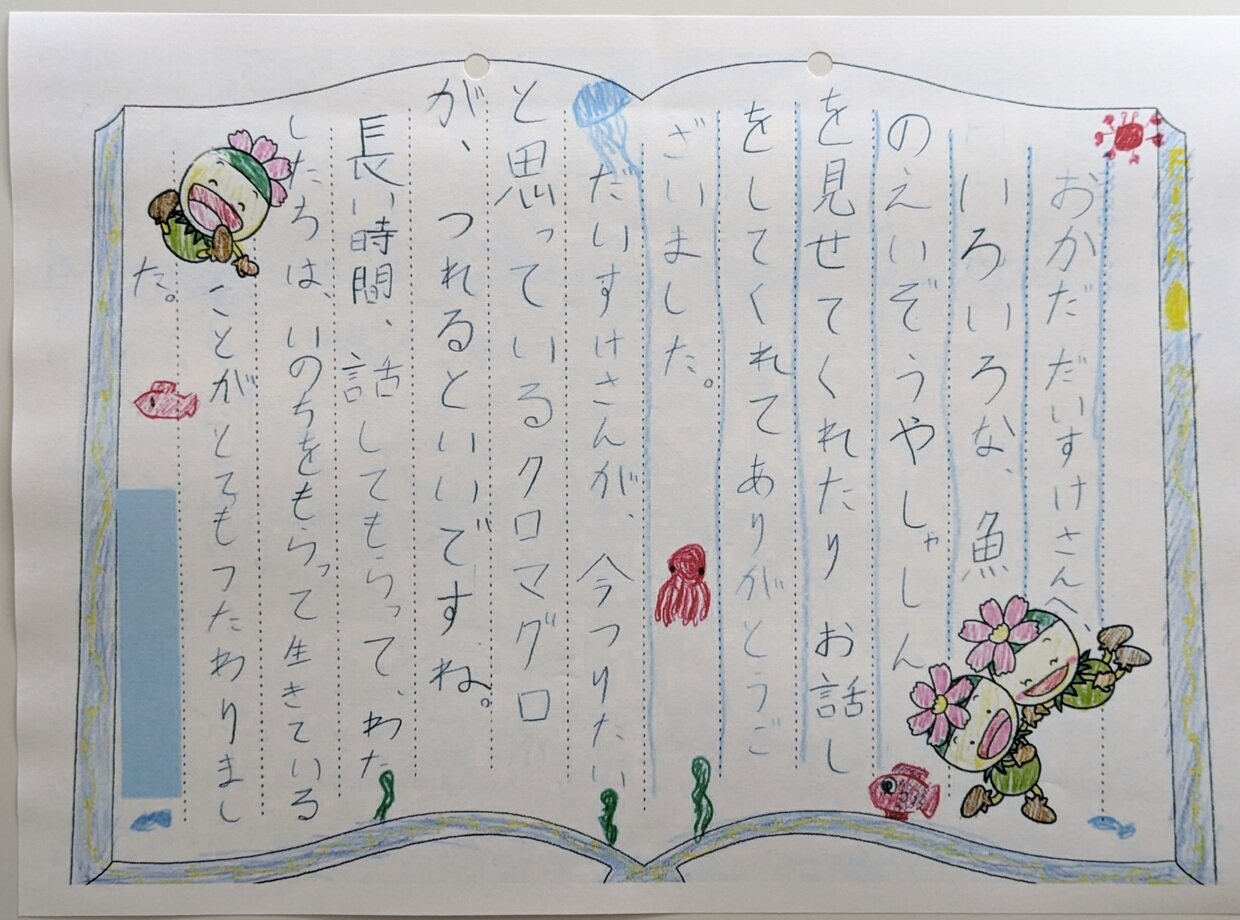 おかだ だいすけさんへ、
いろいろな、魚
のえいぞうやしゃしん
を見せてくれたり お話し
をしてくれてありがとうご
ざいました。
だいすけさんが、今つりたい
と思っているクロマグロ
が、つれるといいですね。
長い時間、話してもらって、わた
したちは、いのちをもらって生きている
ことがとてもつたわりまし
た。